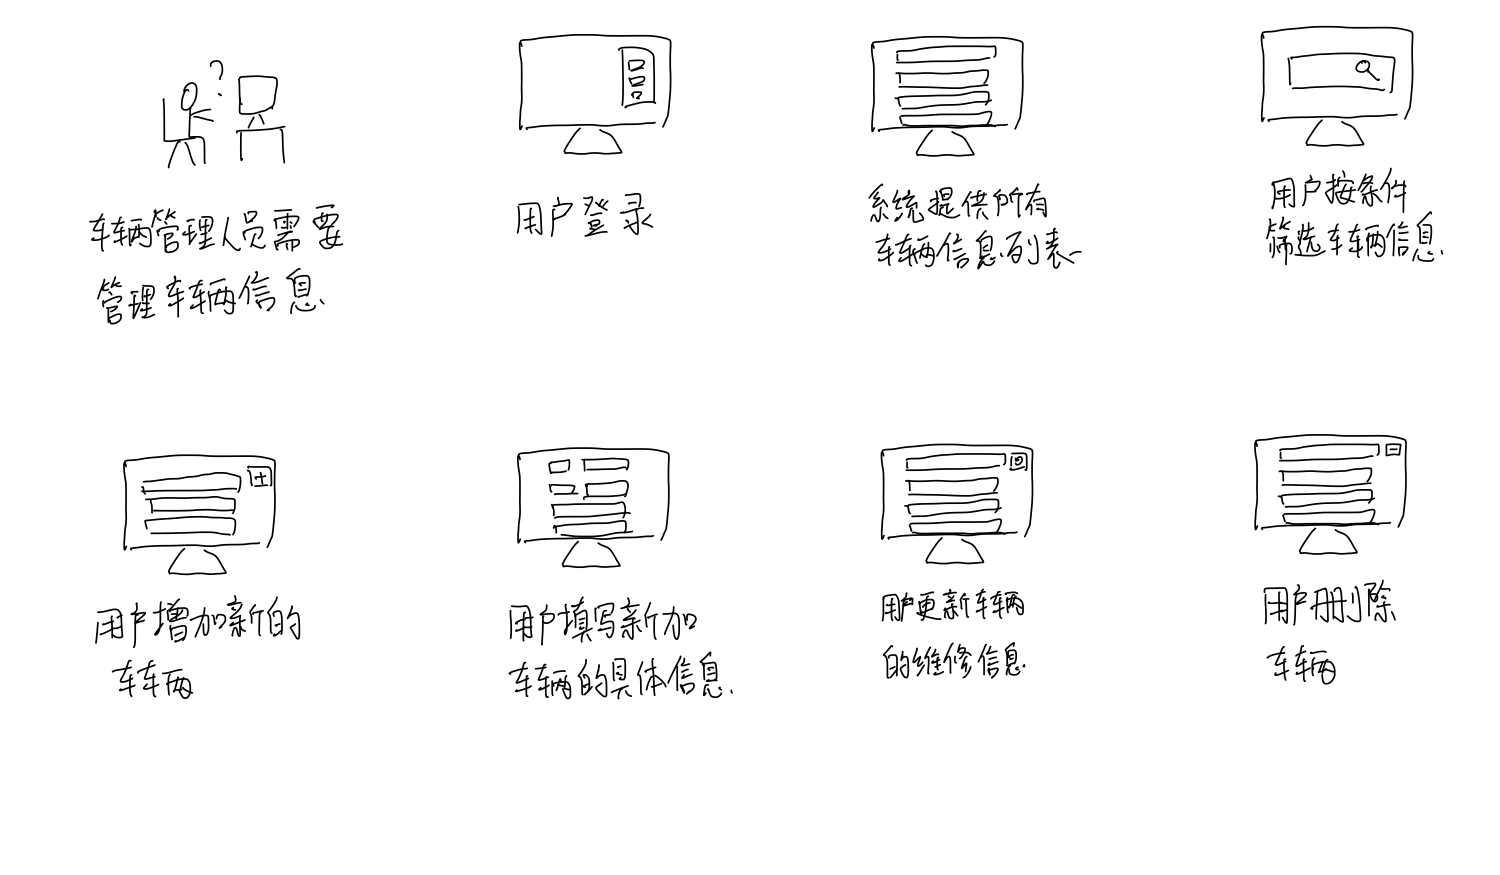 ?
车辆管理人员需要
管理车辆信息.
用户登录
系统提供所有
车辆信息列表
用户按条件
筛选车辆信息.
用户增加新的
车车辆
用户填写新加
车辆的具体信息.
用户更新车辆
的维修信息.
用户删除
车辆